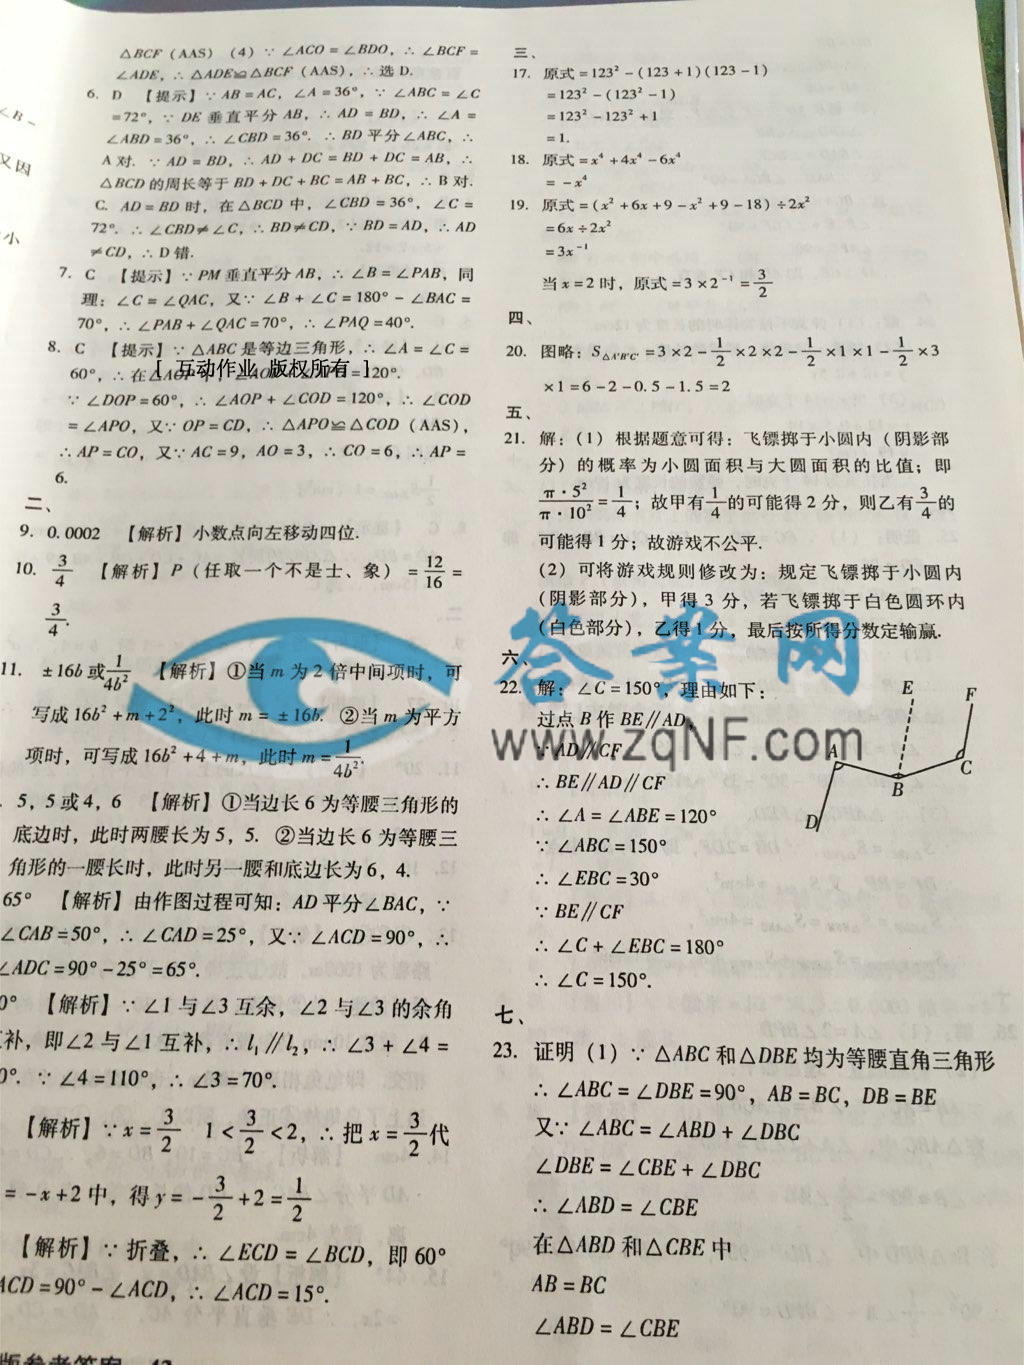 ∠B－
又因
小
△BCF（AAS）（4）∵ ∠ACO＝∠BDO，∴ ∠BCF＝
∠ADE，∴ △ADE≌△BCF（AAS），∴ 选 D.
6. D 【提示】∵ AB＝AC，∠A＝36°，∵ ∠ABC＝∠C
＝72°，∵ DE 垂直平分 AB，∴ AD＝BD，∴ ∠A＝
∠ABD＝36°，∴ ∠CBD＝36°. ∴ BD 平分∠ABC，∴
A 对. ∵ AD＝BD，∴ AD＋DC＝BD＋DC＝AB，∴
△BCD 的周长等于 BD＋DC＋BC＝AB＋BC，∴ B 对.
C. AD＝BD 时，在△BCD 中，∠CBD＝36°，∠C＝
72°. ∴ ∠CBD≠∠C，∴ BD≠CD，∵ BD＝AD，∴ AD
≠CD，∴ D 错.
7. C 【提示】∵ PM 垂直平分 AB，∴ ∠B＝∠PAB，同
理：∠C＝∠QAC，又∵ ∠B＋∠C＝180°－∠BAC＝
70°，∴ ∠PAB＋∠QAC＝70°，∴ ∠PAQ＝40°.
8. C 【提示】∵ △ABC 是等边三角形，∴ ∠A＝∠C＝
60°，∴ 在△AOP ＝120°.
[ 互动作业 版权所有 ]
∵ ∠DOP＝60°，∴ ∠AOP＋∠COD＝120°，∴ ∠COD
＝∠APO，又∵ OP＝CD，∴ △APO≌△COD（AAS），
∴ AP＝CO，又∵ AC＝9，AO＝3，∴ CO＝6，∴ AP＝
6.
二、
9. 0.0002 【解析】小数点向左移动四位.
10. 3/4 【解析】P（任取一个不是士、象）＝12/16＝
3/4.
11. ±16b 或1/4b² 【解析】①当 m 为 2 倍中间项时，可
写成 16b²＋m＋2²，此时 m＝±16b. ②当 m 为平方
项时，可写成 16b²＋4＋m，此时 m＝1/4b².
. 5，5 或 4，6 【解析】①当边长 6 为等腰三角形的
底边时，此时两腰长为 5，5. ②当边长 6 为等腰三
角形的一腰长时，此时另一腰和底边长为 6，4.
65° 【解析】由作图过程可知：AD 平分∠BAC，∵
∠CAB＝50°，∴ ∠CAD＝25°，又∵ ∠ACD＝90°，∴
∠ADC＝90°－25°＝65°.
0° 【解析】∵ ∠1 与∠3 互余，∠2 与∠3 的余角
互补，即∠2 与∠1 互补，∴ l₁∥l₂，∴ ∠3＋∠4＝
0°. ∵ ∠4＝110°，∴ ∠3＝70°.
【解析】∵ x＝3/2 1＜3/2＜2，∴ 把 x＝3/2代
＝－x＋2 中，得 y＝－3/2＋2＝1/2
【解析】∵ 折叠，∴ ∠ECD＝∠BCD，即 60°
ACD＝90°－∠ACD，∴ ∠ACD＝15°.
版参考答案 43
三、
17. 原式＝123²－（123＋1）（123－1）
＝123²－（123²－1）
＝123²－123²＋1
＝1.
18. 原式＝x⁴＋4x⁴－6x⁴
＝－x⁴
19. 原式＝（x²＋6x＋9－x²＋9－18）÷2x²
＝6x÷2x²
＝3x⁻¹
当 x＝2 时，原式＝3×2⁻¹＝3/2
四、
20. 图略：S△A′B′C′＝3×2－1/2×2×2－1/2×1×1－1/2×3
×1＝6－2－0.5－1.5＝2
五、
21. 解：（1）根据题意可得：飞镖掷于小圆内（阴影部
分）的概率为小圆面积与大圆面积的比值；即
π·5²/π·10²＝1/4；故甲有1/4的可能得 2 分，则乙有3/4的
可能得 1 分；故游戏不公平.
（2）可将游戏规则修改为：规定飞镖掷于小圆内
（阴影部分），甲得 3 分，若飞镖掷于白色圆环内
（白色部分），乙得 1 分，最后按所得分数定输赢.
答案网
www.zqNF.com
六、
22. 解：∠C＝150°，理由如下：
过点 B 作 BE∥AD，
∵ AD∥CF
∴ BE∥AD∥CF
∴ ∠A＝∠ABE＝120°
∵ ∠ABC＝150°
∴ ∠EBC＝30°
∵ BE∥CF
∴ ∠C＋∠EBC＝180°
∴ ∠C＝150°.
E
F
A
B
C
D
七、
23. 证明（1）∵ △ABC 和△DBE 均为等腰直角三角形
∴ ∠ABC＝∠DBE＝90°，AB＝BC，DB＝BE
又∵ ∠ABC＝∠ABD＋∠DBC
∠DBE＝∠CBE＋∠DBC
∴ ∠ABD＝∠CBE
在△ABD 和△CBE 中
AB＝BC
∠ABD＝∠CBE